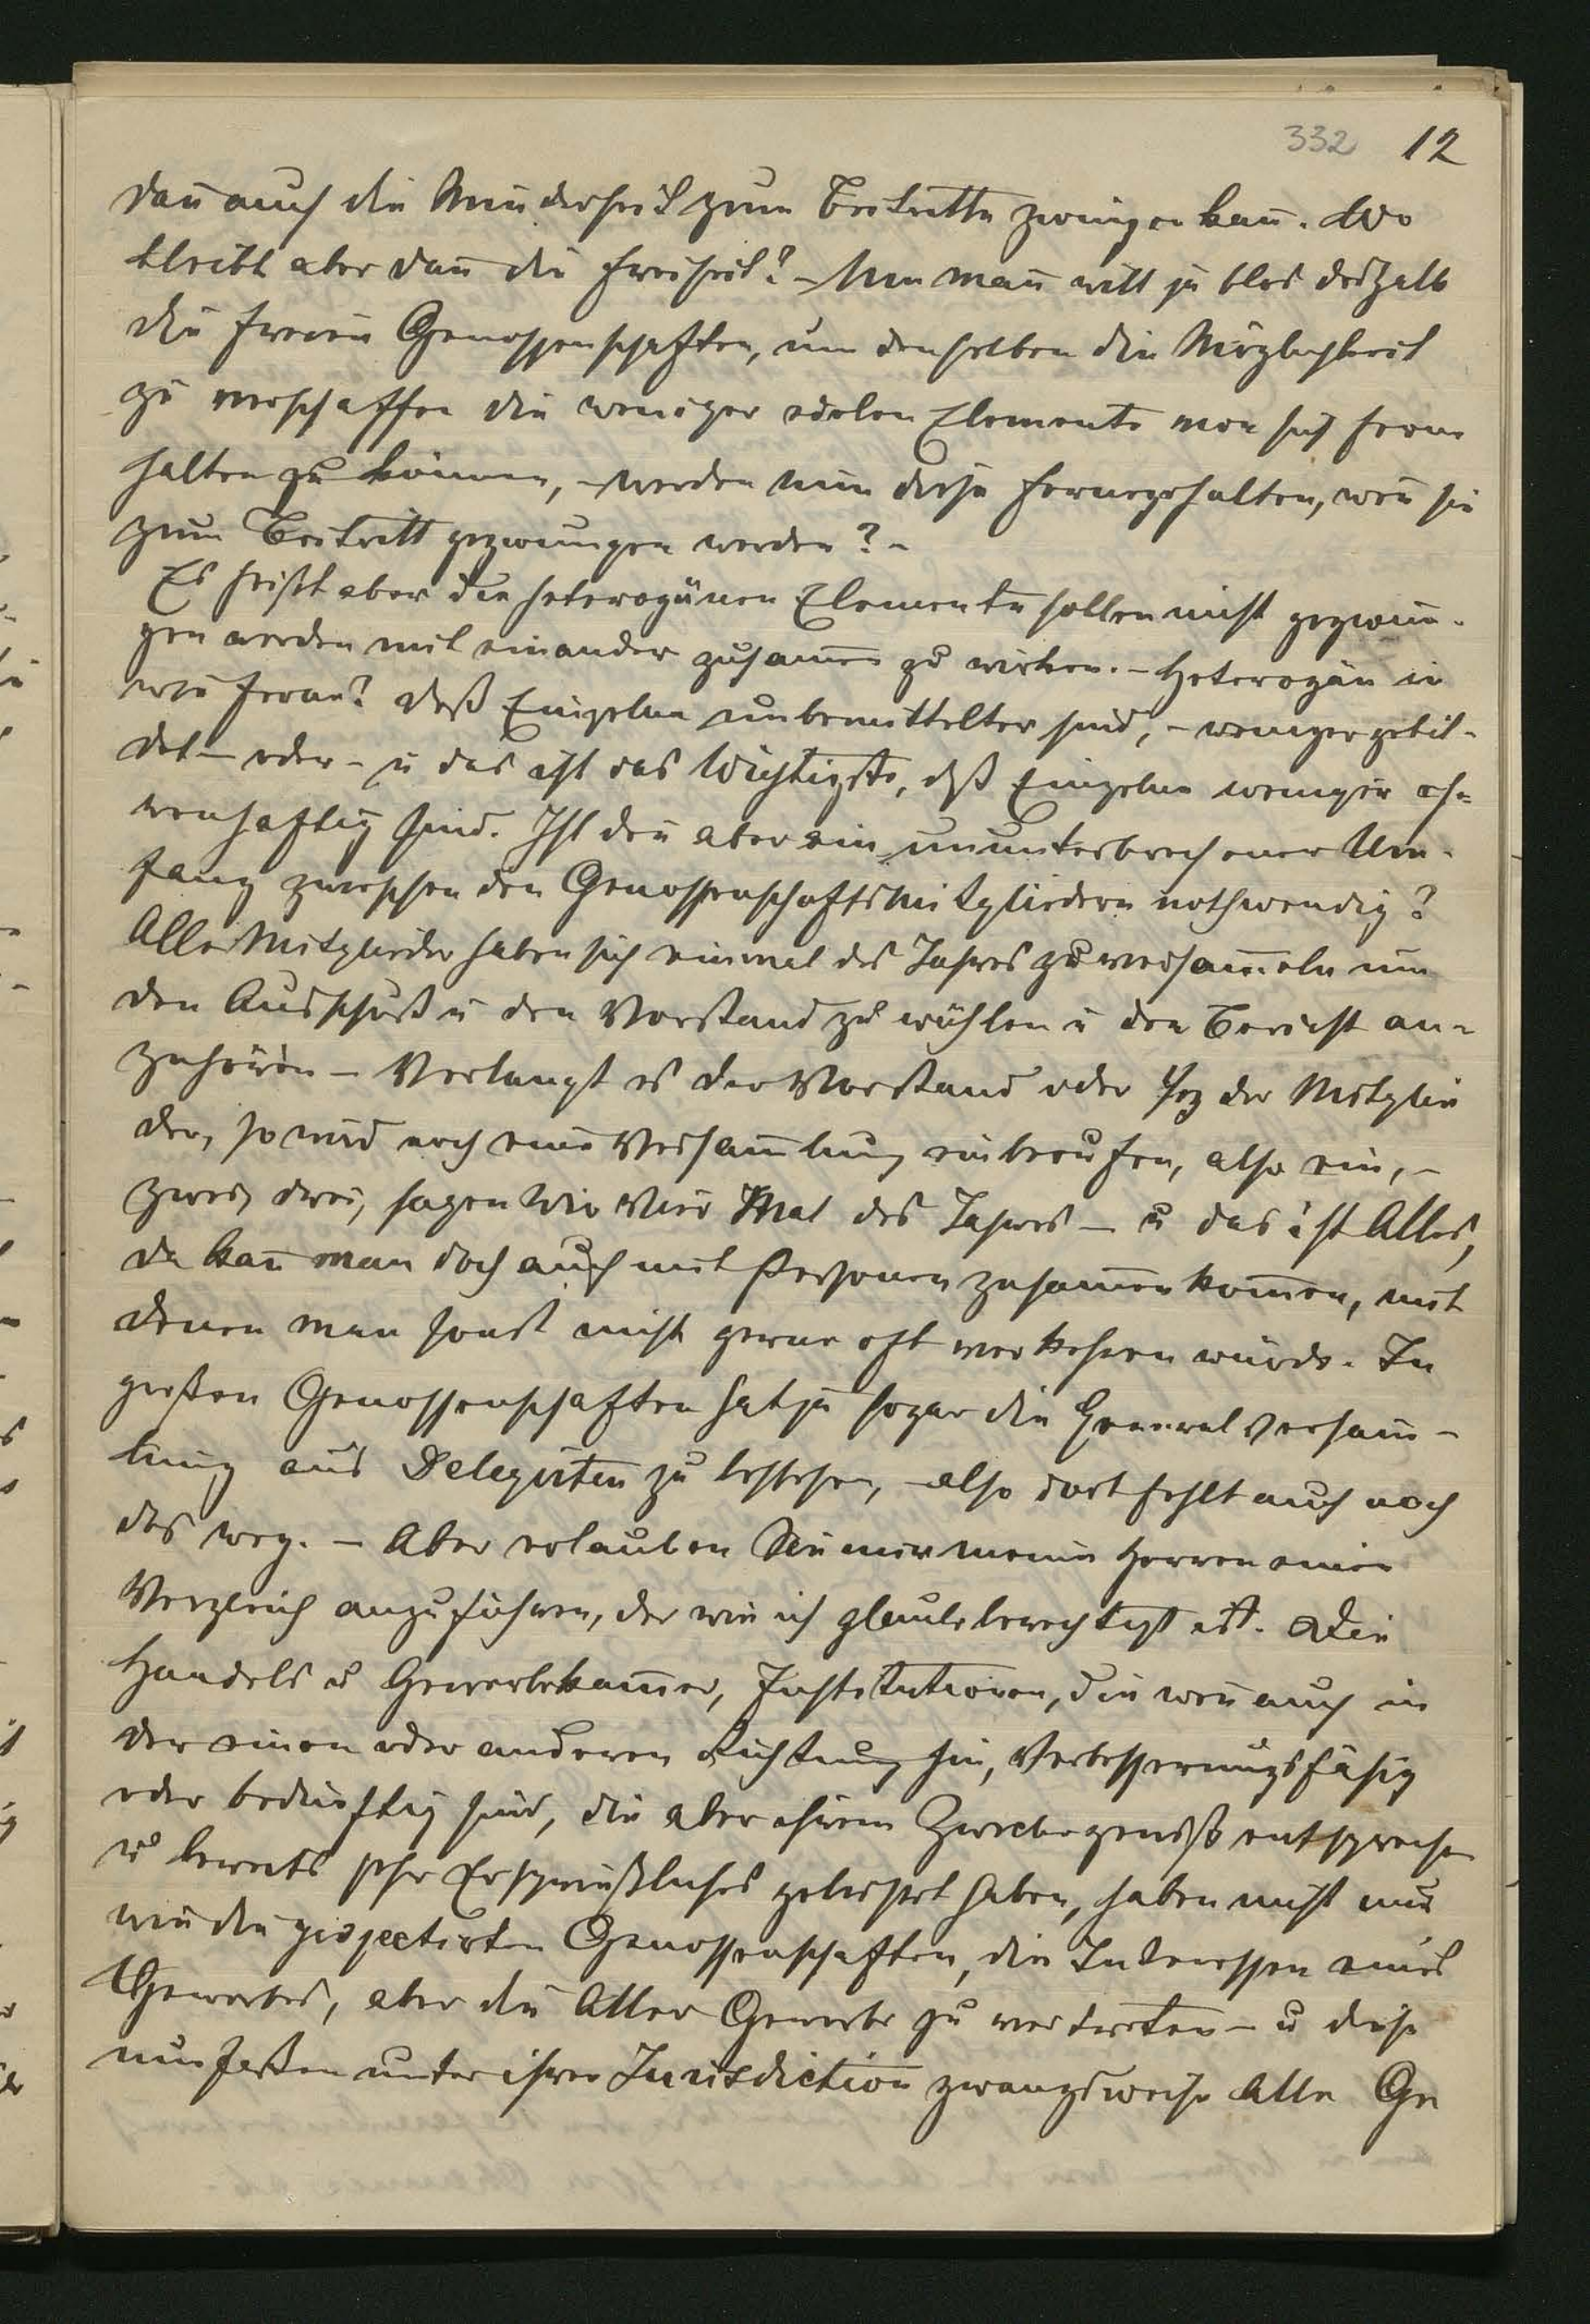 332 12
dañ auch die Minderheit zum Beitritte zwingen kañ. Wo
bleibt aber dañ die Freiheit? – Nun mañ will ja blos deshalb
die freien Genossenschaften, um denselben die Möglichkeit
zu verschaffen die weniger edelen Elemente von sich ferne
halten zu können, – werden nun diese fernegehalten, weñ sie
zum Beitritt gezwungen werden? –
Es heißt aber die heterogänen Elemente sollen nicht gezwun-
gen werden mit einander zusam̄en zu wirken. – Heterogän in
wie ferne? daß Einzelne unbemittelter sind, – weniger gebil-
det – oder – u das ist das Wichtigste, daß Einzelne weniger eh-
renhaftig sind. Ist deñ aber ein ununterbrochener Um-
gang zwischen den Genossenschaftsmitgliedern nothwendig?
Alle Mitglieder haben sich einmal des Jahres zu versam̄eln um
den Ausschuß u den Vorstand zu wählen u den Bericht an-
zuhören – Verlangt es der Vorstand oder der Mitglie
der, so wird noch eine Versam̄lung einberufen, also ein, –
zwei, drei, sagen wir vier Mal des Jahres – u das ist Alles,
da kañ man doch auch mit Personen zusam̄en kom̄en, mit
denen man sonst nicht gerne oft verkehren würde. In
großen Genossenschaften hat ja sogar die General Versam̄-
lung aus Delegirten zu bestehen, – also dort fehlt auch noch
das weg. – Aber erlauben Sie mir meine Herren einen
Vergleich anzuführen, der wie ich glaube berechtigt ist. Die
Handels u Gewerbekam̄er, Institutionen, die weñ auch in
der einen oder anderen Richtung hin, Verbesserungsfähig
oder bedürftig sind, die aber ihrem Zwecke gemäß entsprechen
u bereits sehr Ersprießliches geleistet haben, haben nicht nur
wie die projectirten Genossenschaften, die Interessen eines
Gewerbes, aber die Aller Gewerbe zu vertreten – u diese
umfaßen unter ihrer Jurisdiction zwangsweise Alle Ge